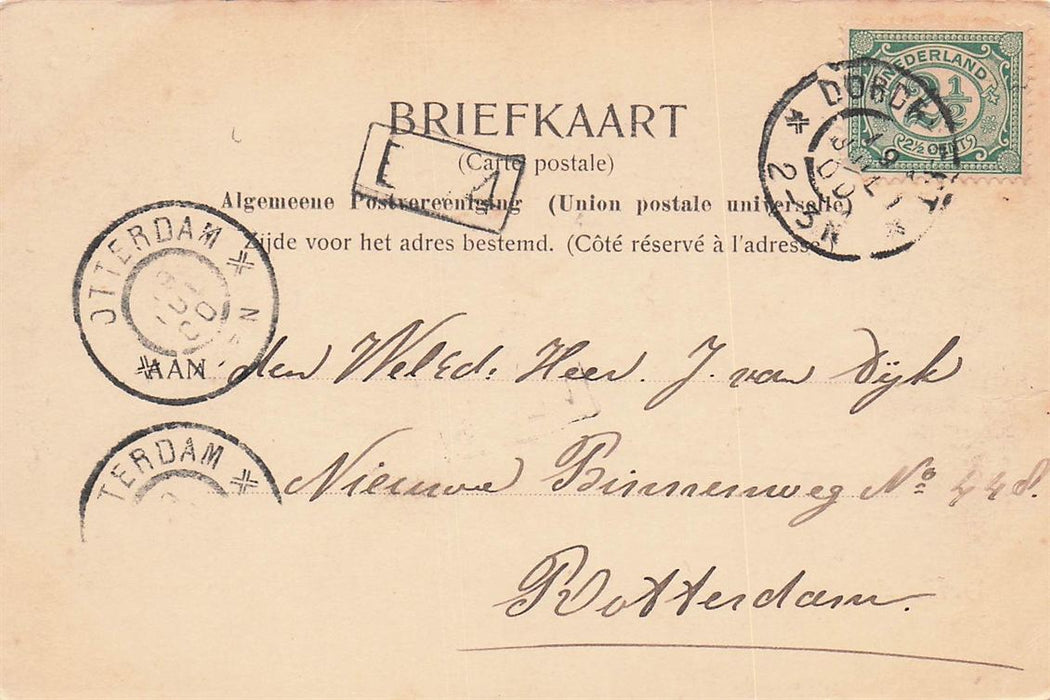 NEDERLAND
2½
2½ CENT
DORDRECHT
2-3N
BRIEFKAART
(Carte postale)
Algemeene Postvereeniging (Union postale universelle)
Zijde voor het adres bestemd. (Côté réservé à l'adresse
OTTERDAM
N
AAN den WelEd: Heer. J. van Dijk
TERDAM
Nieuwe Binnenweg No 448.
Rotterdam.